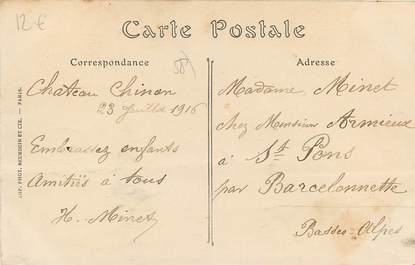 12€
Carte Postale
Correspondance
58)
Chateau Chinon
23 Juillet 1916
Embrassez enfants
Amitiés à tous
H. Minet
Adresse
Madame Minet
chez Monsieur Armieux
à St Pons
par Barcelonnette
Basses-Alpes
IMP. PHOT. NEURDEIN ET CIE. — PARIS.